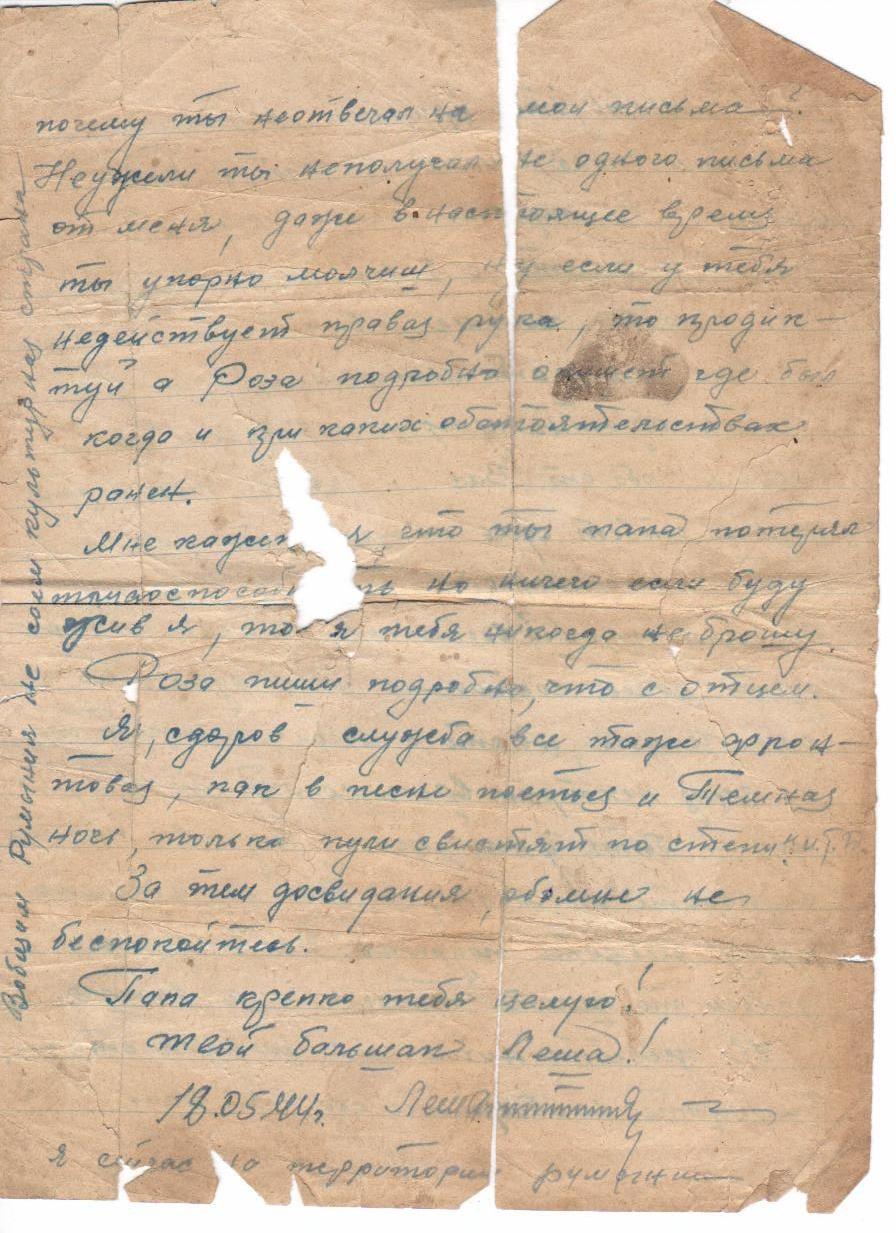 почему ты неотвечал на мои письма?
Неужели ты неполучал не одного письма
от меня, даже внастоящее время
ты упорно молчиш, ну если у тебя
недействует правая рука, то продик-
туй а Роза подробно опишет где был
когда и при каких обстоятельствах
ранен.
Мне кажется что ты папа потерял
но ничего если буду
жив я, то я тебя никогда не брошу
Роза пиши подробно, что с отцем.
Я, здоров служба все таже фрон-
товая, как в песне поеться и Темная
ночь, только пули свистят по степи и.т.п.
За тем досвидания, обомне не
беспокойтесь.
Папа крепко тебя целую!
твой большак Леша!
18.05.44г. Леша
я сейчас на территории румынии
Вобщем Румыния не совсем культурная страна